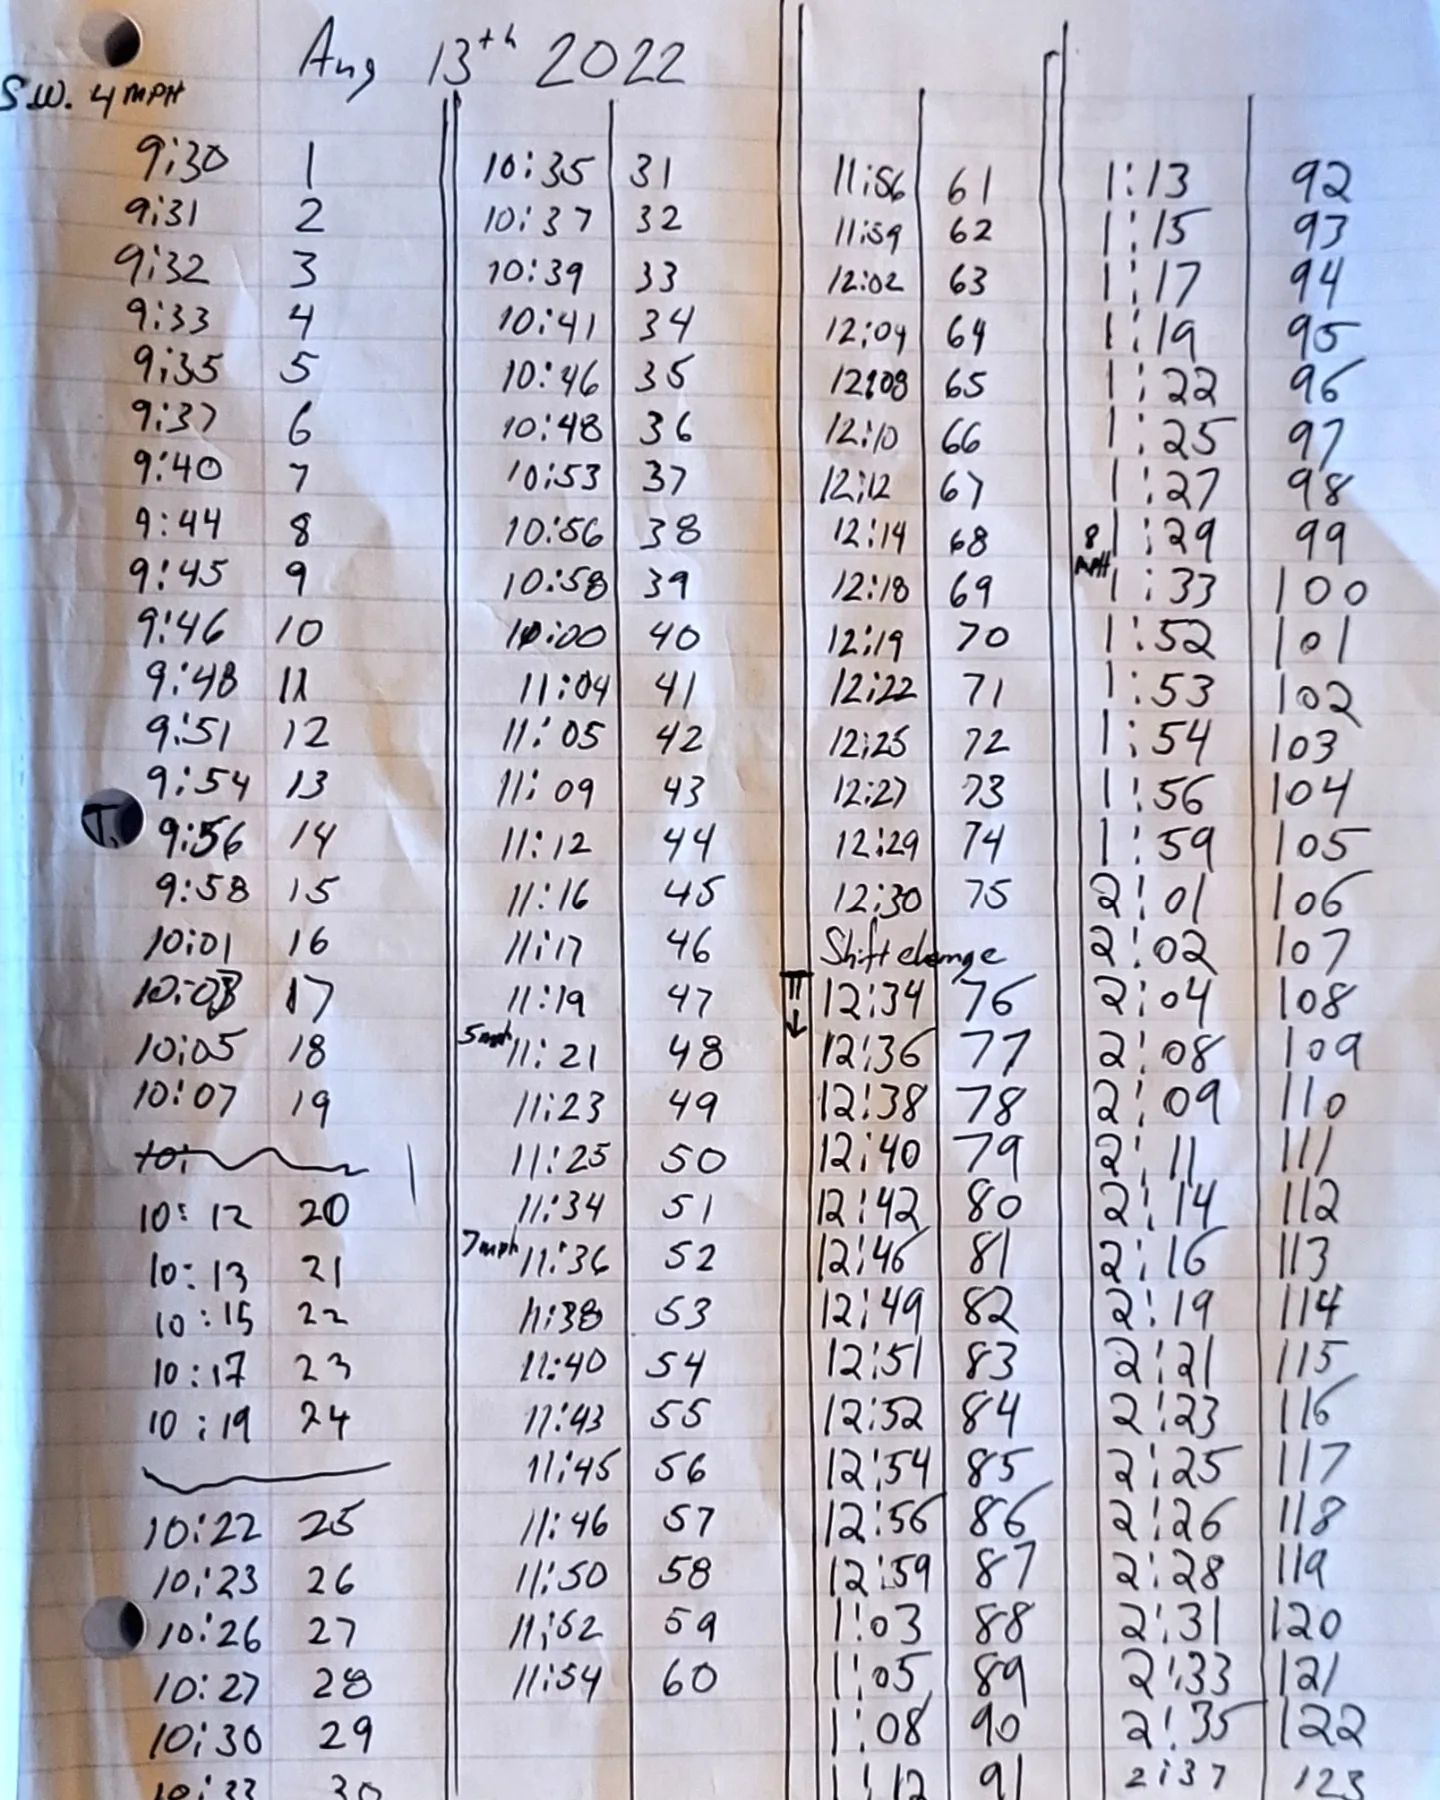 Aug 13th 2022
S.W. 4 MPH
9:30 1
9:31 2
9:32 3
9:33 4
9:35 5
9:37 6
9:40 7
9:44 8
9:45 9
9:46 10
9:48 11
9:51 12
9:54 13
T. 9:56 14
9:58 15
10:01 16
10:03 17
10:05 18
10:07 19
10:
10:12 20
10:13 21
10:15 22
10:17 23
10:19 24
10:22 25
10:23 26
10:26 27
10:27 28
10:30 29
10:33 30
10:35 31
10:37 32
10:39 33
10:41 34
10:46 35
10:48 36
10:53 37
10:56 38
10:58 39
10:00 40
11:04 41
11:05 42
11:09 43
11:12 44
11:16 45
11:17 46
11:19 47
5mph 11:21 48
11:23 49
11:25 50
11:34 51
7mph 11:36 52
11:38 53
11:40 54
11:43 55
11:45 56
11:46 57
11:50 58
11:52 59
11:54 60
11:56 61
11:59 62
12:02 63
12:04 64
12:08 65
12:10 66
12:12 67
12:14 68
12:18 69
12:19 70
12:22 71
12:25 72
12:27 73
12:29 74
12:30 75
Shift change
12:34 76
12:36 77
12:38 78
12:40 79
12:42 80
12:46 81
12:49 82
12:51 83
12:52 84
12:54 85
12:56 86
12:59 87
1:03 88
1:05 89
1:08 90
1:12 91
1:13 92
1:15 93
1:17 94
1:19 95
1:22 96
1:25 97
1:27 98
8 MPH 1:29 99
1:33 100
1:52 101
1:53 102
1:54 103
1:56 104
1:59 105
2:01 106
2:02 107
2:04 108
2:08 109
2:09 110
2:11 111
2:14 112
2:16 113
2:19 114
2:21 115
2:23 116
2:25 117
2:26 118
2:28 119
2:31 120
2:33 121
2:35 122
2:37 123